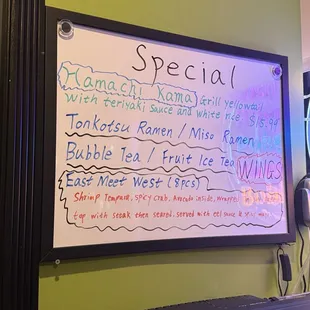 Special
Hamachi Kama Grill yellowtail
with teriyaki sauce and white rice $15.95
Tonkotsu Ramen / Miso Ramen
Bubble Tea / Fruit Ice Tea
WINGS
East Meet West (8pcs)
Shrimp Tempura, spicy crab, Avocado inside, wrapped
top with steak then seared, served with eel sauce &